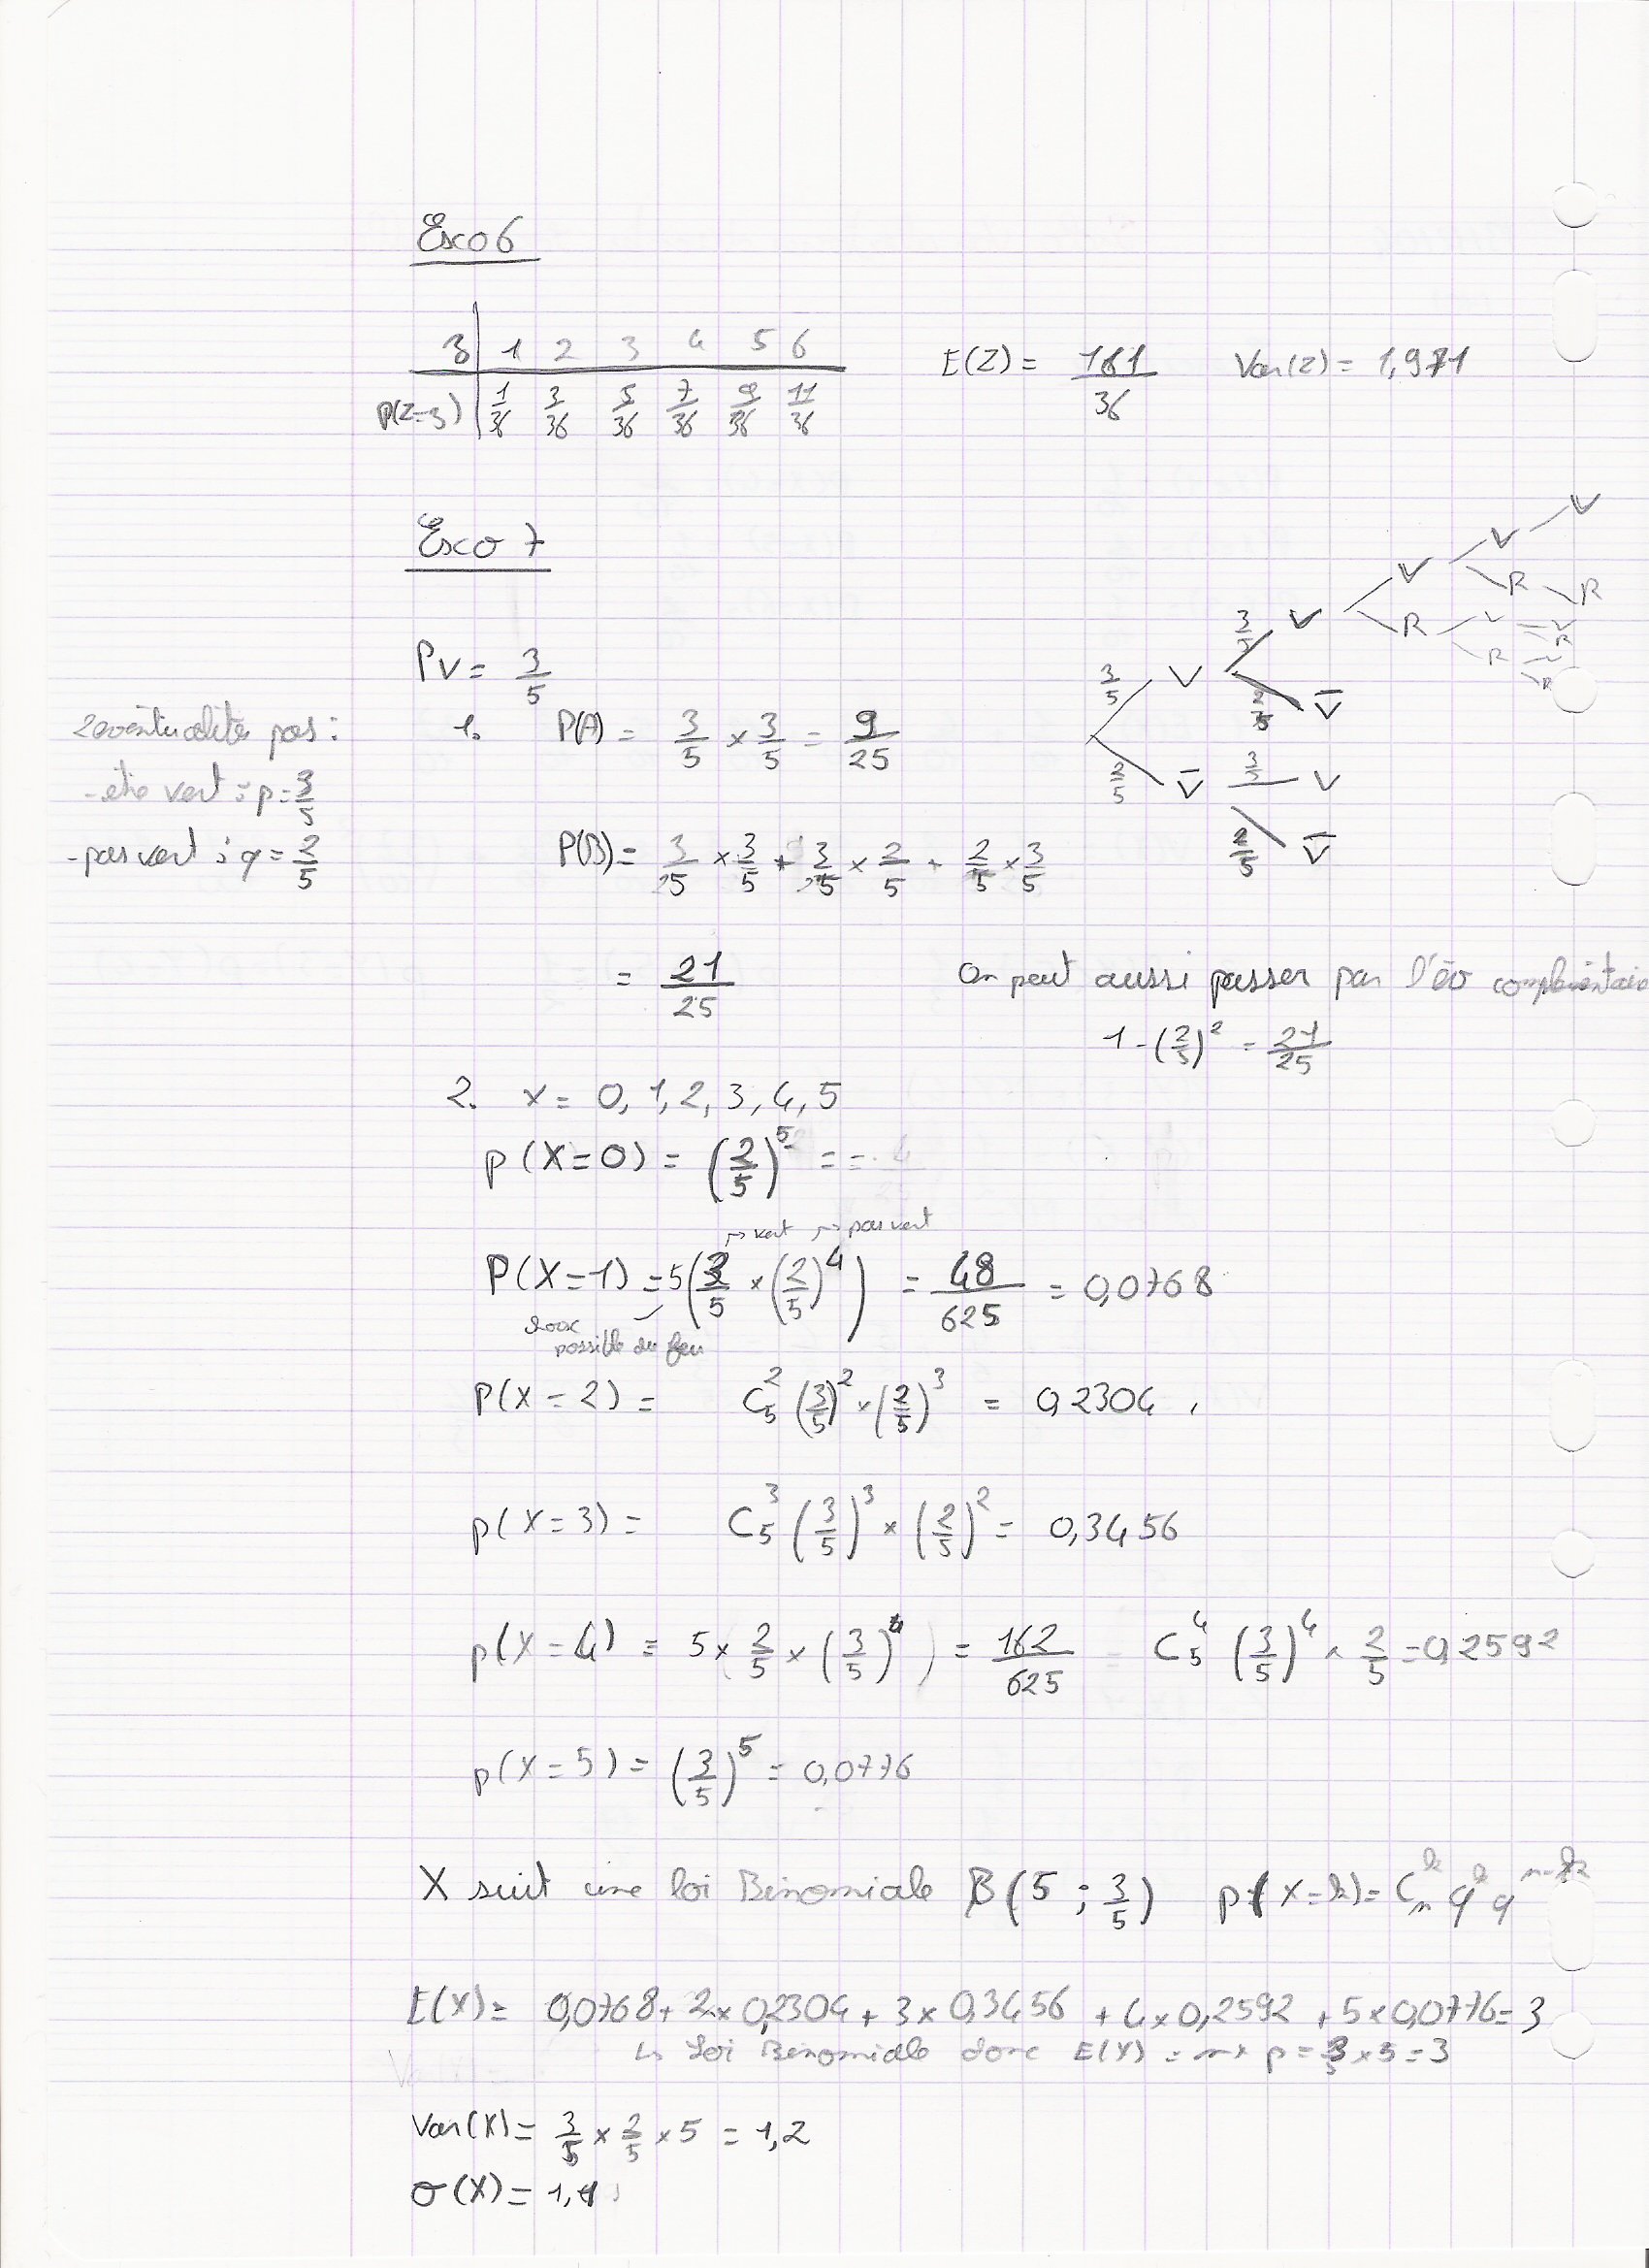 Exo 6
z | 1 2 3 4 5 6
p(Z=z) | 1/36 3/36 5/36 7/36 9/36 11/36
E(Z) = 161/36 Var(Z) = 1,971
Exo 7
Pv = 3/5
2 éventualités pos :
- être vert : p = 3/5
- pas vert : q = 2/5
1. P(A) = 3/5 × 3/5 = 9/25
P(B) = 3/5 × 3/5 + 3/5 × 2/5 + 2/5 × 3/5
= 21/25
3/5 V 3/5 V V V V
R R
R V V R
R V R
2/5 V̅
2/5 V̅ 3/5 V
2/5 V̅
On peut aussi passer par l'év complémentaire
1 - (2/5)² = 21/25
2. x = 0, 1, 2, 3, 4, 5
p(X=0) = (2/5)⁵ = =
↦ vert ↦ pas vert
P(X=1) = 5(3/5 × (2/5)⁴) = 48/625 = 0,0768
possible du feu
P(X=2) = C₅² (3/5)² × (2/5)³ = 0,2304
p(X=3) = C₅³ (3/5)³ × (2/5)² = 0,3456
p(X=4) = 5 × 2/5 × (3/5)⁴ = 162/625 = C₅⁴ (3/5)⁴ × 2/5 = 0,2592
p(X=5) = (3/5)⁵ = 0,0776
X suit une loi Binomiale B(5 ; 3/5) p(X=k) = Cₙᵏ qᵏ qⁿ⁻ᵏ
E(X) = 0,0768 + 2 × 0,2304 + 3 × 0,3456 + 4 × 0,2592 + 5 × 0,0776 = 3
↳ Loi Binomiale donc E(X) = n × p = 3/5 × 5 = 3
Var(X) = 3/5 × 2/5 × 5 = 1,2
σ(X) = 1,1